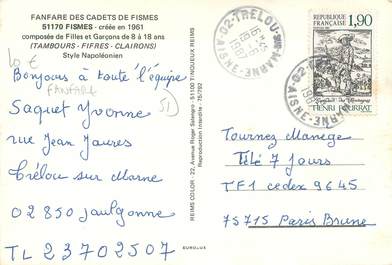 FANFARE DES CADETS DE FISMES
51170 FISMES - créée en 1961
composée de Filles et Garçons de 8 à 18 ans
(TAMBOURS - FIFRES - CLAIRONS)
Style Napoléonien
10 €
Bonjours à toute l'équipe
FANFARE
51
Saquet Yvonne
rue Jean Jaures
Trélou sur Marne
02 850 Jaulgonne
TL 23702507
REIMS COLOR - 22, Avenue Roger Salengro - 51100 TINQUEUX REIMS
Reproduction Interdite - 75/792
EUROLUX
02-TRELOU-SUR-MARNE-AISNE
RÉPUBLIQUE FRANÇAISE
1,90
HENRI POURRAT
02-TRELOU-SUR-MARNE-AISNE
Tournez Manège
Télé 7 Jours
TF1 cedex 9645
75715 Paris Brune